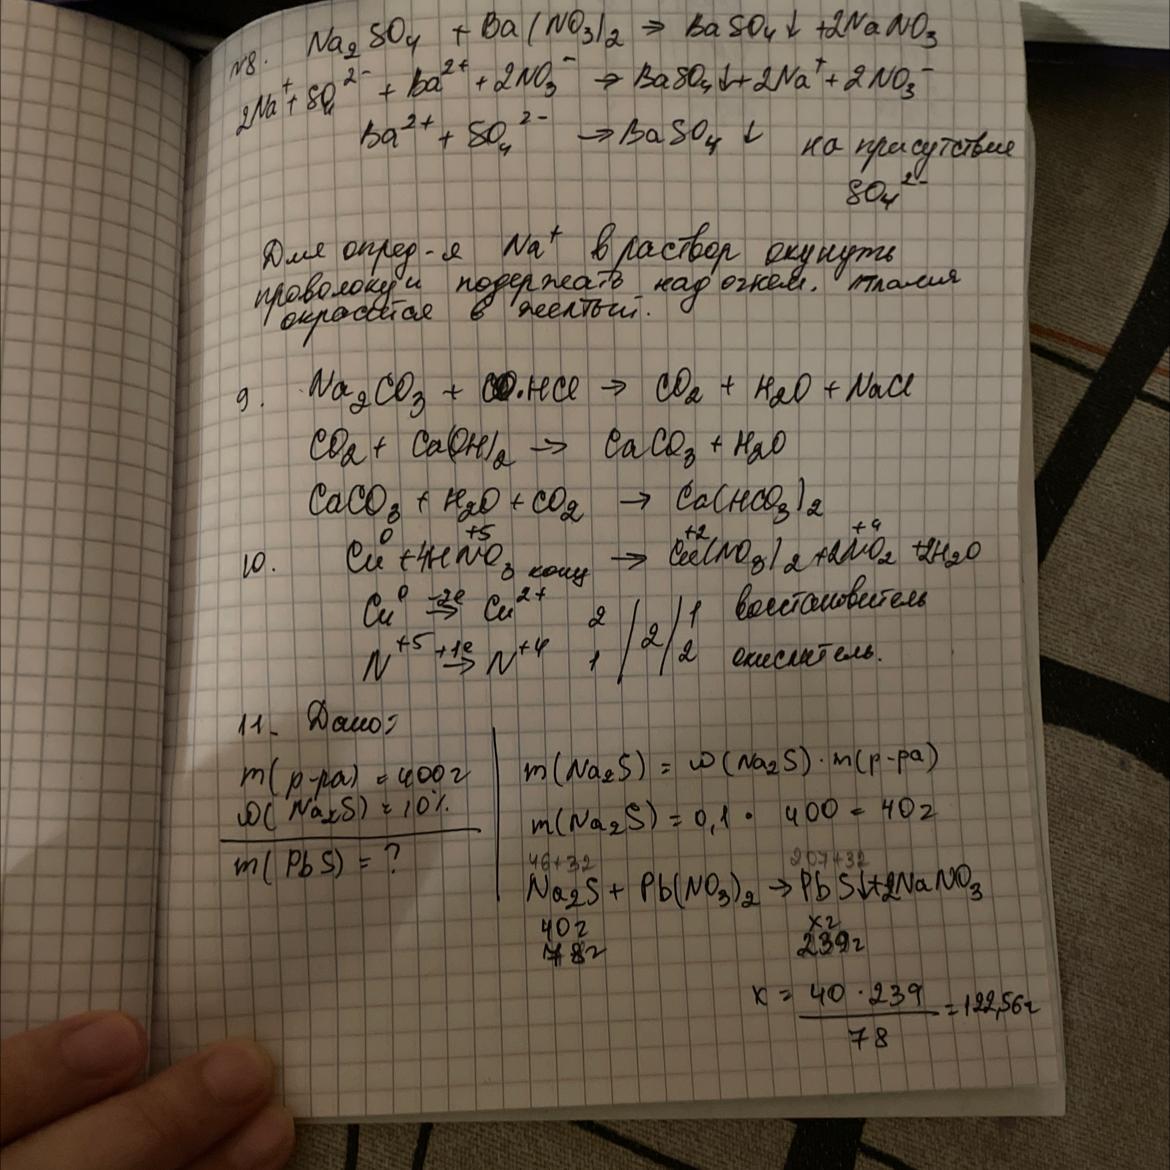 №8. Na₂SO₄ + Ba(NO₃)₂ ⇒ BaSO₄↓ + 2NaNO₃
2Na⁺ + SO₄²⁻ + Ba²⁺ + 2NO₃⁻ → BaSO₄↓ + 2Na⁺ + 2NO₃⁻
Ba²⁺ + SO₄²⁻ → BaSO₄ ↓ на присутствие
SO₄²⁻
Для опред-я Na⁺ в раствор окунуть
проволоку и подержать над огнем. пламя
окрасится в желтый.
9. Na₂CO₃ + HCl → CO₂ + H₂O + NaCl
CO₂ + Ca(OH)₂ → CaCO₃ + H₂O
CaCO₃ + H₂O + CO₂ → Ca(HCO₃)₂
0 +5 +2 +4
10. Cu + 4HNO₃ конц → Cu(NO₃)₂ + 2NO₂ + 2H₂O
Cu⁰ -2e → Cu²⁺ 2 / 2 / 1 восстановитель
N⁺⁵ +1e → N⁺⁴ 1 / / 2 окислитель.
11. Дано:
m(р-ра) = 400г
ω(Na₂S) = 10%
m(PbS) = ?
m(Na₂S) = ω(Na₂S) · m(р-ра)
m(Na₂S) = 0,1 · 400 = 40г
46+32 207+32
Na₂S + Pb(NO₃)₂ → PbS↓ + 2NaNO₃
40г xг
78г 239г
x = 40 · 239 / 78 = 122,56г